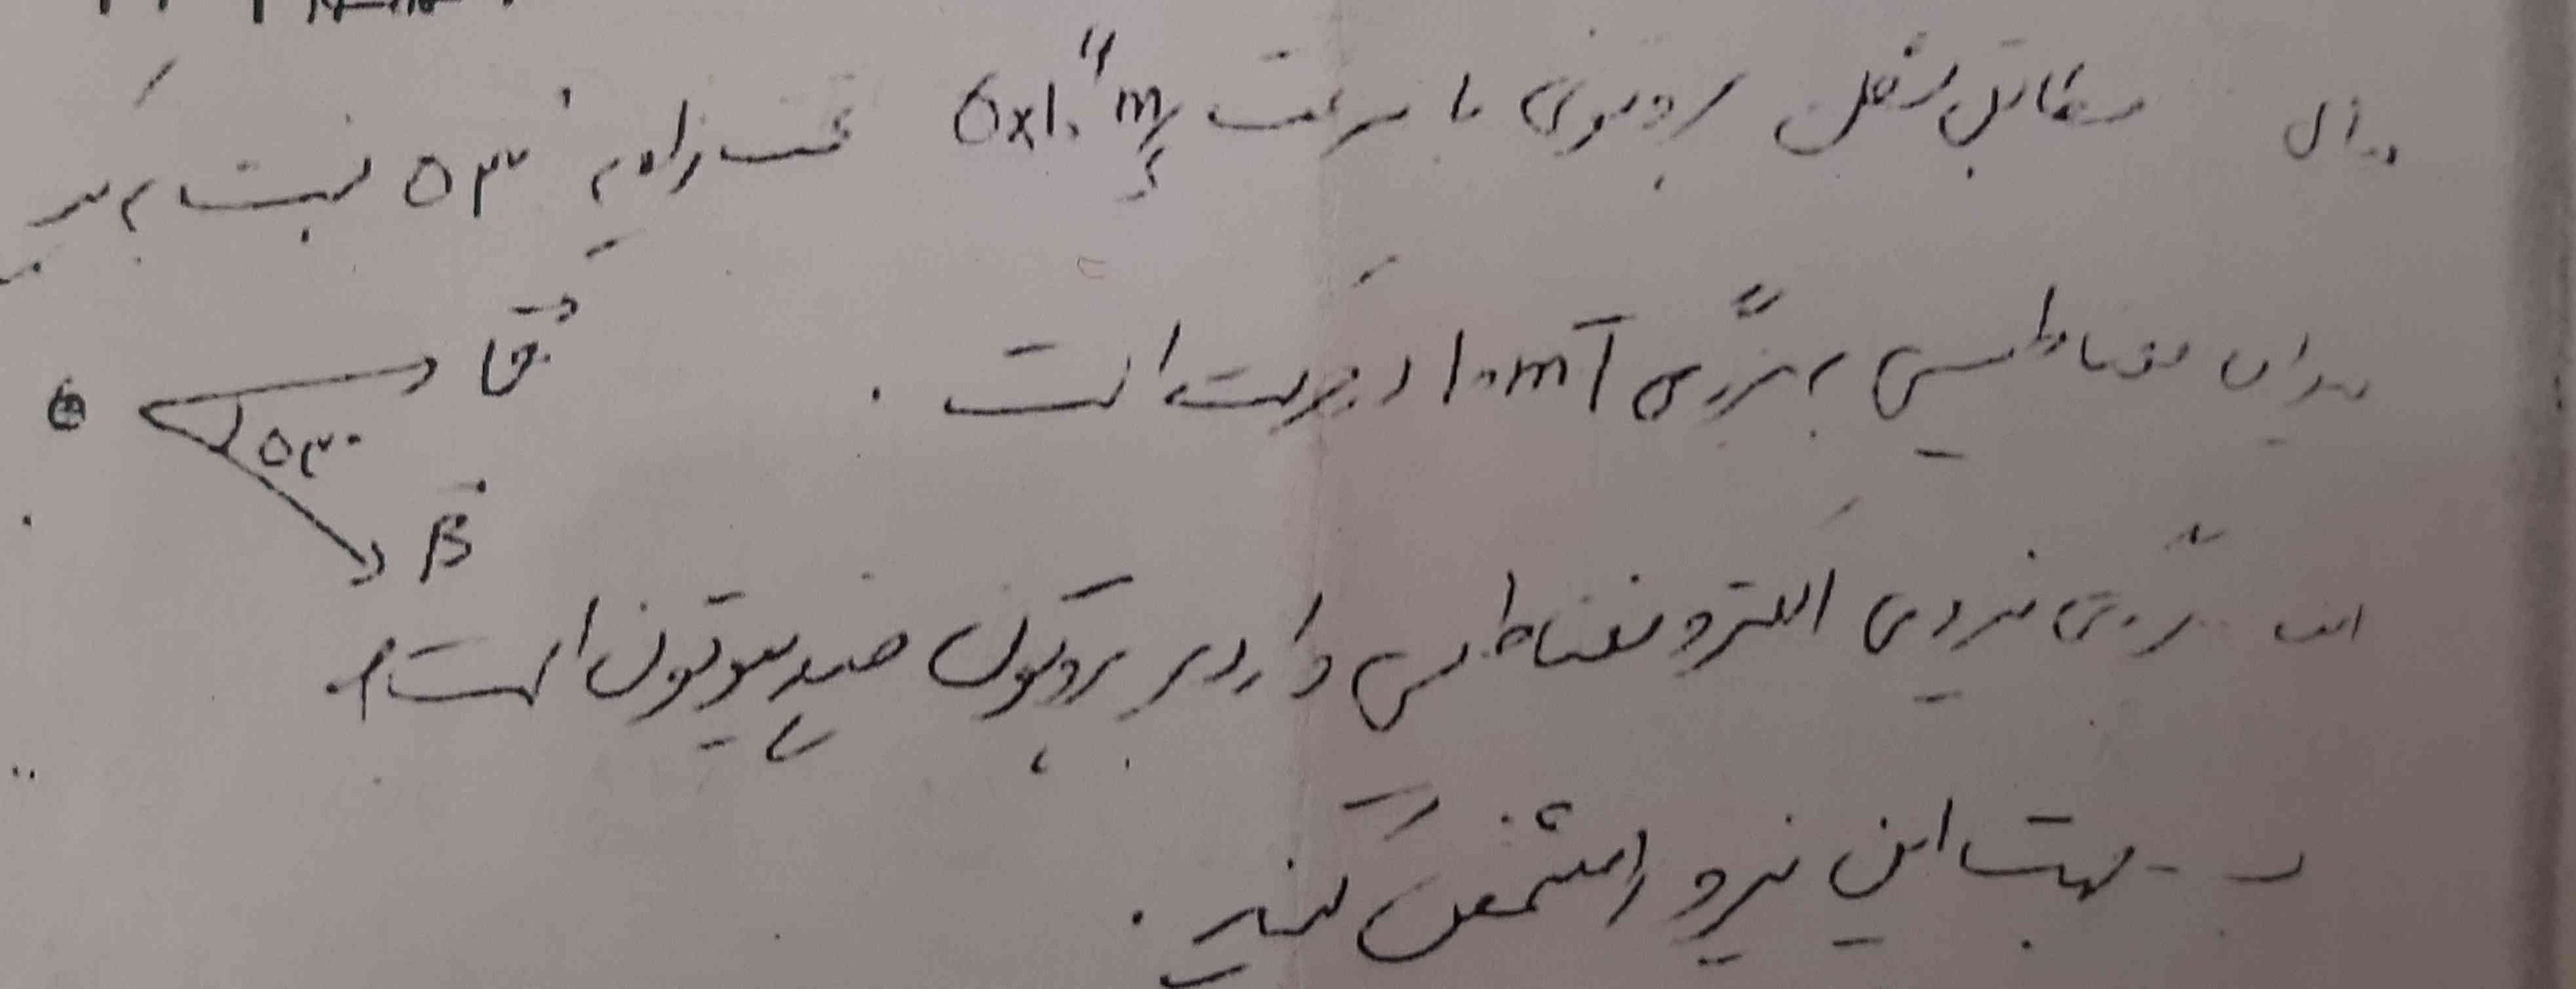 سوال مطابق شکل پروتونی با سرعت ۵×۱۰ m/s تحت زاویه ۵۳° نسبت به
میدان مغناطیسی به بزرگی ۱۰mT در حرکت است .
⊕ ۵۳° B
الف بزرگی نیروی الکترومغناطیسی وارد بر پروتون چند نیوتون است؟
ب - جهت این نیرو را مشخص کنید .